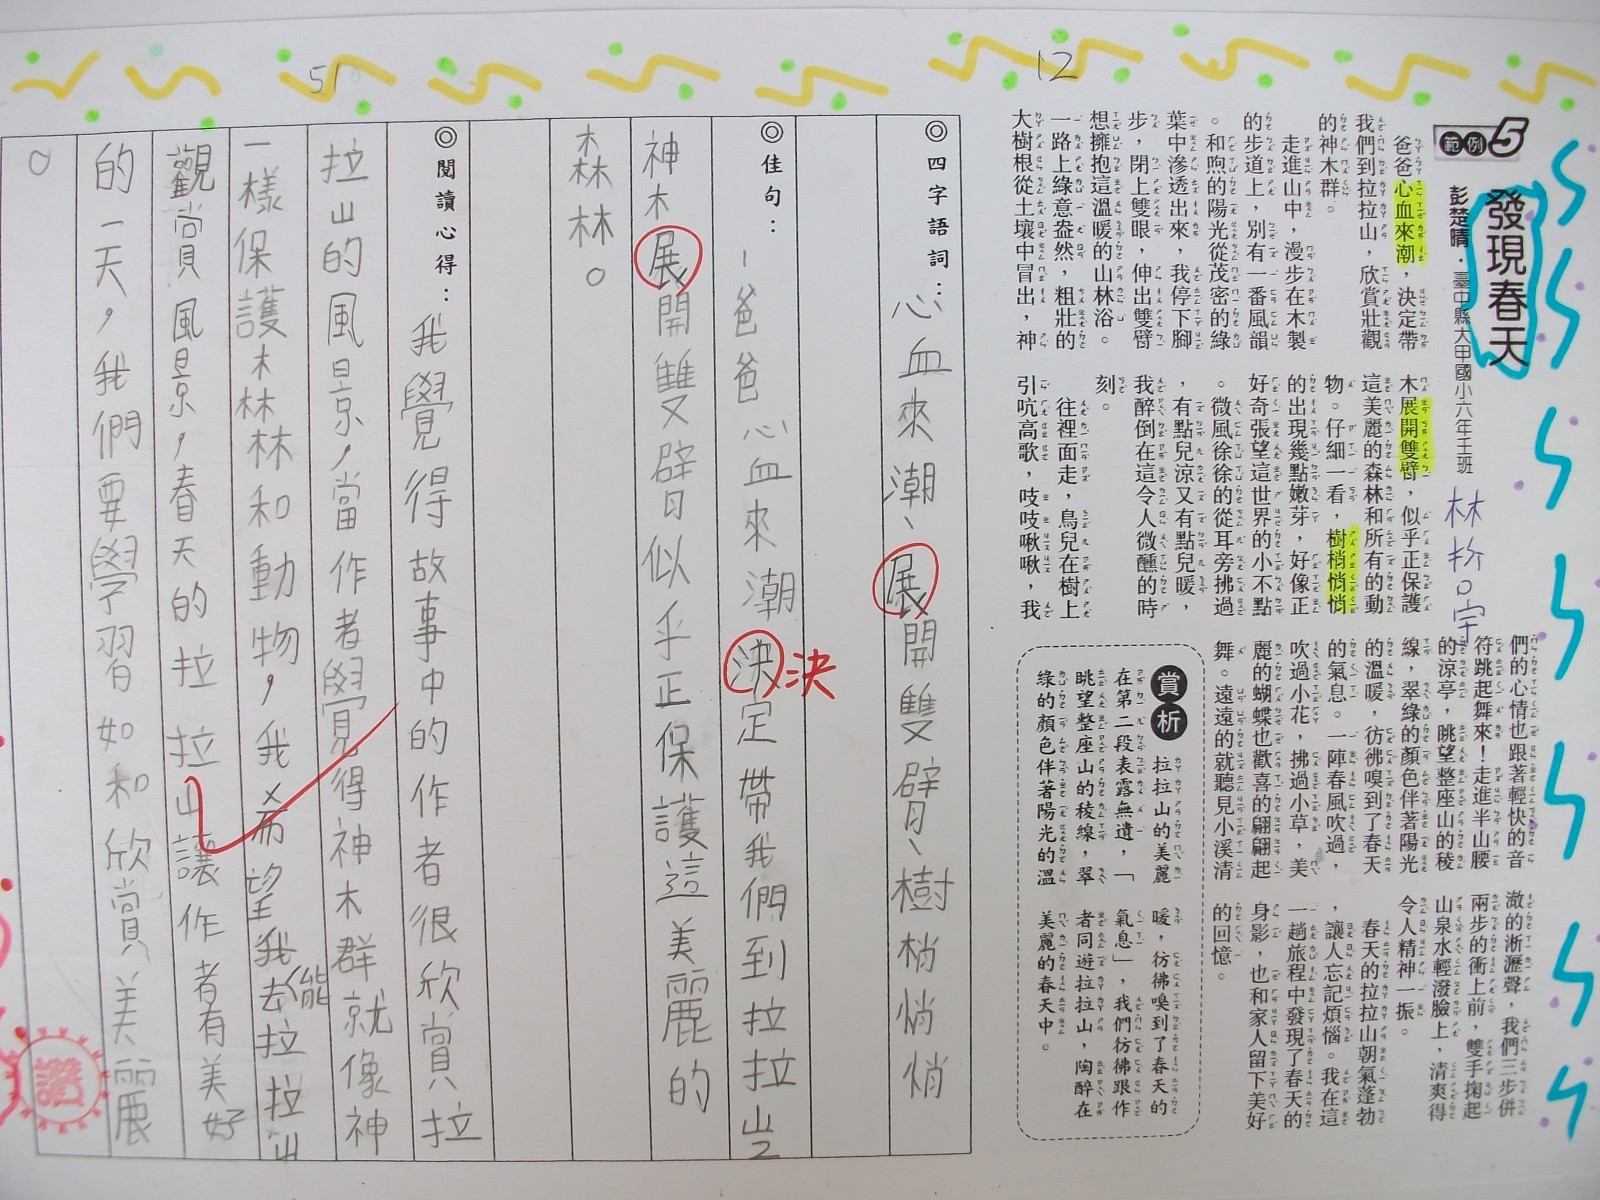 12
51
範例5
發現春天
彭楚晴・臺中縣大甲國小六年壬班
爸爸心血來潮，決定帶
我們到拉拉山，欣賞壯觀
的神木群。
走進山中，漫步在木製
的步道上，別有一番風韻
。和煦的陽光從茂密的綠
葉中滲透出來，我停下腳
步，閉上雙眼，伸出雙臂
想擁抱這溫暖的山林浴。
一路上綠意盎然，粗壯的
大樹根從土壤中冒出，神
木展開雙臂，似乎正保護
這美麗的森林和所有的動
物。仔細一看，樹梢悄悄
的出現幾點嫩芽，好像正
好奇張望這世界的小不點
。微風徐徐的從耳旁拂過
，有點兒涼又有點兒暖，
我醉倒在這令人微醺的時
刻。
往裡面走，鳥兒在樹上
引吭高歌，吱吱啾啾，我
們的心情也跟著輕快的音
符跳起舞來！走進半山腰
的涼亭，眺望整座山的稜
線，翠綠的顏色伴著陽光
的溫暖，彷彿嗅到了春天
的氣息。一陣春風吹過，
吹過小花，拂過小草，美
麗的蝴蝶也歡喜的翩翩起
舞。遠遠的就聽見小溪清
澈的淅瀝聲，我們三步併
兩步的衝上前，雙手掬起
山泉水輕潑臉上，清爽得
令人精神一振。
春天的拉拉山朝氣蓬勃
，讓人忘記煩惱。我在這
一趟旅程中發現了春天的
身影，也和家人留下美好
的回憶。
賞析
拉拉山的美麗
在第二段表露無遺，「
眺望整座山的稜線，翠
綠的顏色伴著陽光的溫
暖，彷彿嗅到了春天的
氣息」，我們彷彿跟作
者同遊拉拉山，陶醉在
美麗的春天中。
◎四字語詞：心血來潮、展開雙臂、樹梢悄悄
◎佳句：爸爸心血來潮決定帶我們到拉拉山
決
神木展開雙臂似乎正保護這美麗的
森林。
◎閱讀心得：我覺得故事中的作者很欣賞拉
拉山的風景，當作者覺得神木群就像神
一樣保護森林和動物，我希望我能去拉拉山
觀賞風景，春天的拉拉山讓作者有美好
的一天，我們要學習如和欣賞美麗
。
讚